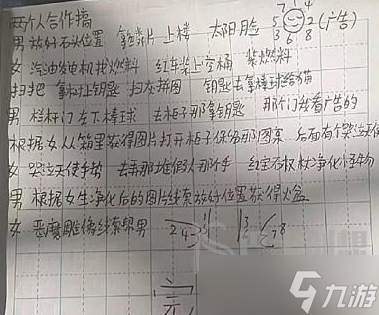 两个人合作搞
男 放好石头位置 拿靠片 上楼 太阳脸 (广告)
7 1 4
5 2
3 6 8
女 汽油发电机找燃料 红车装上空桶 装燃料
扫把 拿 钥匙 扫灰拼图 钥匙去拿棒球给猫
男 栏杆门左下棒球 去柜子那拿钥匙 那个门我看广告的
根据女从箱里获得图片打开柜子保险那图案 后面有个哭泣天使
女 哭泣天使手势 去弄那堆假人那个手 红宝石权杖净化小怪物
男 根据女生净化后的图片线索放好位置获得火盆
女 恶魔雕像线索帮男
2 4 1 3 7 8
九游